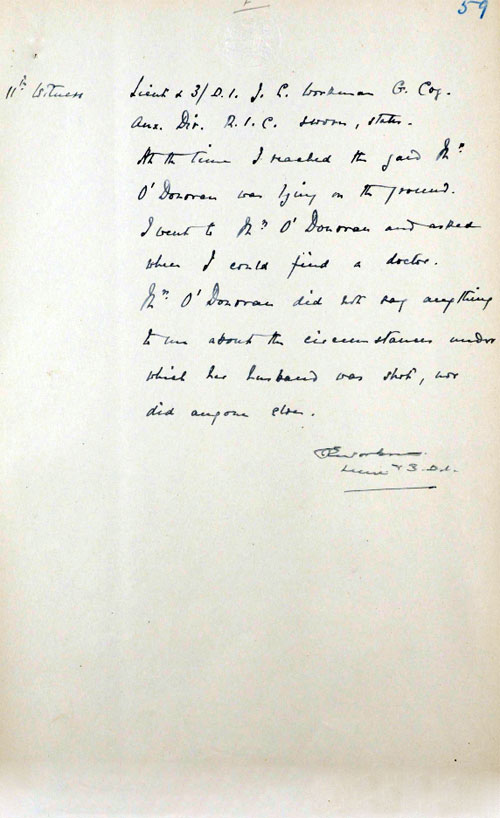 59
11th Witness
Lieut & 3/D.I. J. C. Workman G. Coy.
Aux. Div. R.I.C. sworn, states.
At the time I reached the yard Mr
O'Donovan was lying on the ground.
I went to Mrs O'Donovan and asked
where I could find a doctor.
Mrs O'Donovan did not say anything
to me about the circumstances under
which her husband was shot, nor
did anyone else.
Workman.
Lieut & 3 D.I.